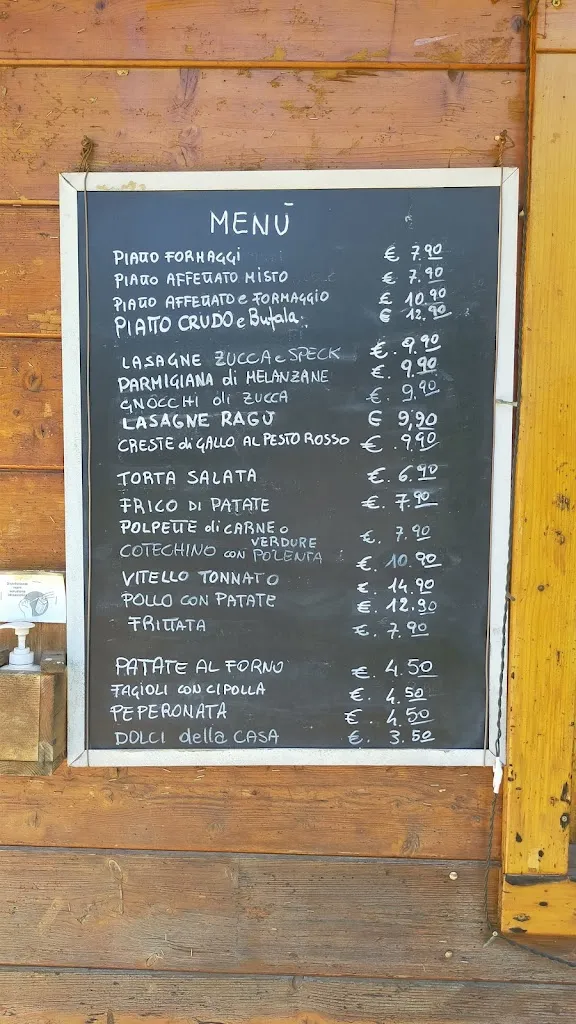 MENÙ
PIATTO FORMAGGI € 7.90
PIATTO AFFETTATO MISTO € 7.90
PIATTO AFFETTATO e FORMAGGIO € 10.90
PIATTO CRUDO e Bufala. € 12.90
LASAGNE ZUCCA e SPECK €. 9.90
PARMIGIANA di MELANZANE €. 9.90
GNOCCHI di ZUCCA €. 9.90
LASAGNE RAGÙ € 9,90
CRESTE di GALLO AL PESTO ROSSO €. 9.90
TORTA SALATA €. 6.90
FRICO DI PATATE €. 7.90
POLPETTE di CARNE o
VERDURE €. 7.90
COTECHINO con POLENTA €. 10.90
VITELLO TONNATO €. 14.90
POLLO CON PATATE €. 12.90
FRITTATA €. 7.90
PATATE AL FORNO €. 4.50
FAGIOLI CON CIPOLLA €. 4.50
PEPERONATA €. 4.50
DOLCI della CASA €. 3.50